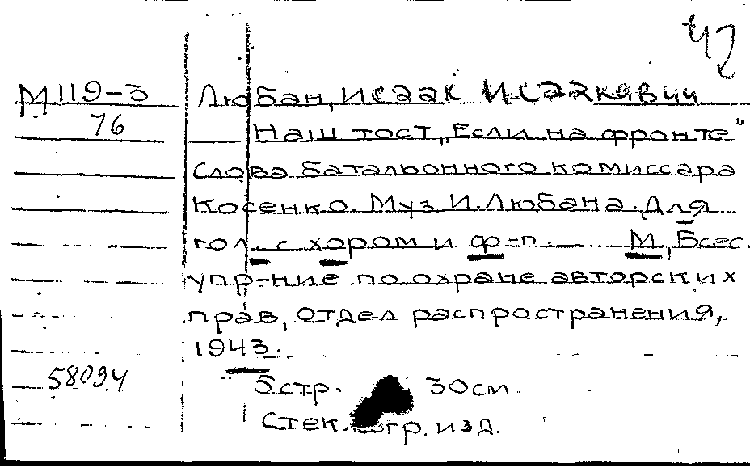 42
М119-3 Любан, Исаак Исаакович
76 Наш тост „Если на фронте"
слова батальонного комиссара
Косенко. Муз И. Любана. Для
гол. с хором и ф-п. М, Всес.
упр-ние по охране авторских
прав, отдел распространения,
1943.
58094 5 стр. 30 см.
Стек. изд.